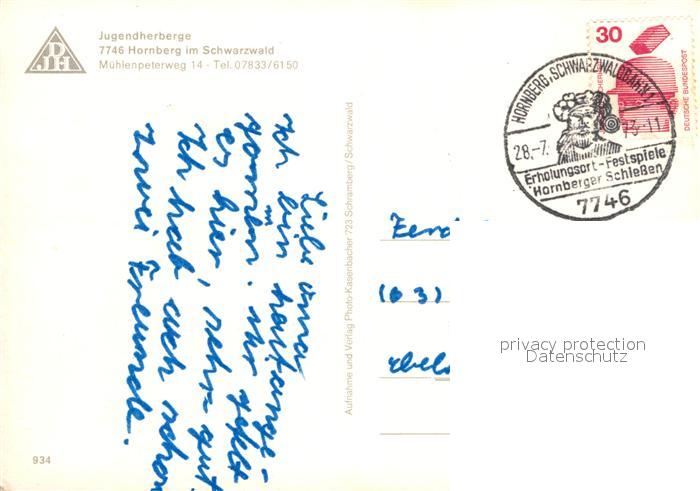 Jugendherberge
7746 Hornberg im Schwarzwald
Mühlenpeterweg 14 - Tel. 07833/6150
DJH
30
DEUTSCHE BUNDESPOST
HORNBERG, SCHWARZWALDBAHN
28.-7.
-11
Erholungsort-Festspiele
Hornberger Schießen
7746
Liebe Oma
ich bin heut ange-
kommen. Mir gefällt
es hier sehr gut
Ich hab auch schon
zwei Freunde.
Aufnahme und Verlag Photo-Kasenbacher 723 Schramberg/Schwarzwald
(03)
privacy protection
Datenschutz
934